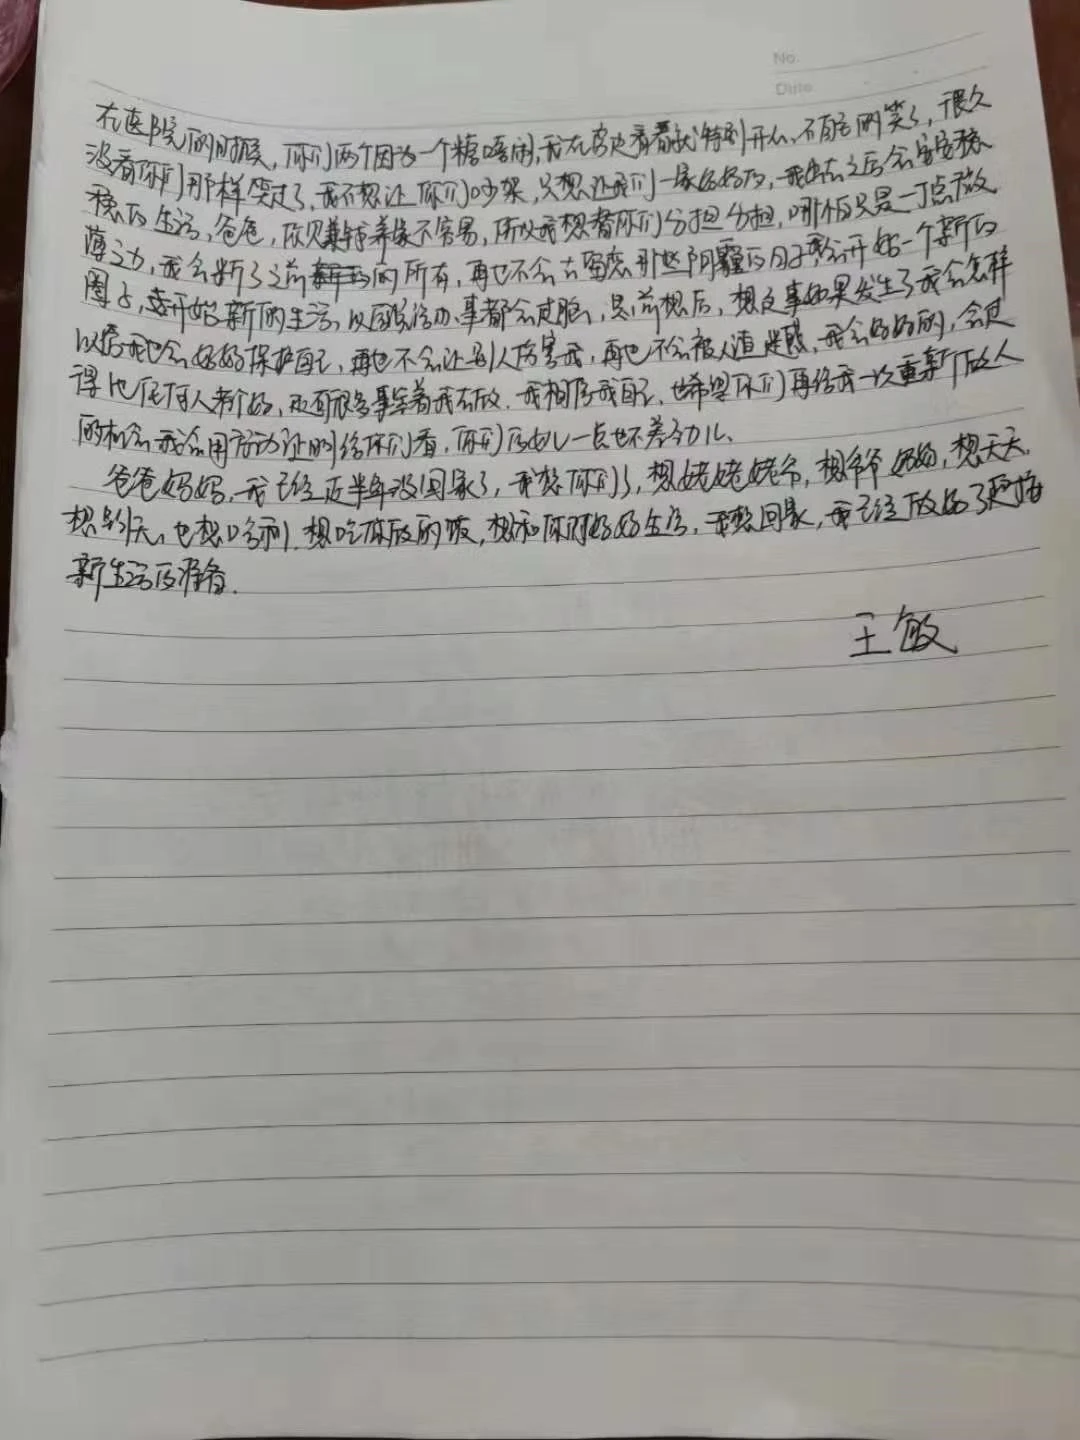 No.
Date
在医院的时候，你们两个因为一个糖嘻闹，我在旁边看着我特别开心，不自觉的笑了，很久
没看你们那样笑过了，我不想让你们吵架，只想让我们一家好好的，我出去之后会安安稳
稳的生活，爸爸，你赚钱养家不容易，所以我想着你们分担分担，哪怕只是一丁点微
薄之力，我会断了之前的所有，再也不会去留恋那些阴霾的日子，我会开始一个新的
圈子，开始新的生活，以后说话办事都会过脑，思前想后，想这事如果发生了我会怎样
以后我也会好好保护自己，再也不会让别人伤害我，再也不会被人渣迷惑，我会好好的，会过
得比任何人都好，还有很多事等着我去做，我相信我自己，也希望你们再给我一次重新做人
的机会我会用行动证明给你们看，你们的女儿一点也不差劲儿。
爸爸妈妈，我已经近半年没回家了，我想你们了，想姥姥姥爷，想爷爷奶奶，想天天，
想天，也想哈利，想吃你做的饭，想和你们好好生活，我想回家，我已经做好了迎接
新生活的准备．
王敏